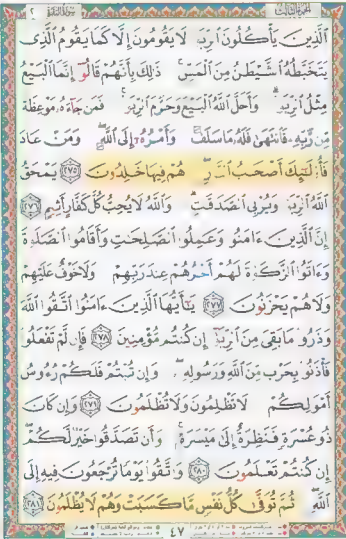 الَّذِينَ يَأْكُلُونَ الرِّبَوٰا۟ لَا يَقُومُونَ إِلَّا كَمَا يَقُومُ الَّذِى
يَتَخَبَّطُهُ الشَّيْطَٰنُ مِنَ الْمَسِّ ۚ ذَٰلِكَ بِأَنَّهُمْ قَالُوٓا۟ إِنَّمَا الْبَيْعُ
مِثْلُ الرِّبَوٰا۟ ۗ وَأَحَلَّ اللَّهُ الْبَيْعَ وَحَرَّمَ الرِّبَوٰا۟ ۚ فَمَن جَآءَهُۥ مَوْعِظَةٌ
مِّن رَّبِّهِۦ فَانتَهَىٰ فَلَهُۥ مَا سَلَفَ وَأَمْرُهُۥٓ إِلَى اللَّهِ ۖ وَمَنْ عَادَ
فَأُو۟لَٰٓئِكَ أَصْحَٰبُ النَّارِ ۖ هُمْ فِيهَا خَٰلِدُونَ ﴿٢٧٥﴾ يَمْحَقُ
اللَّهُ الرِّبَوٰا۟ وَيُرْبِى الصَّدَقَٰتِ ۗ وَاللَّهُ لَا يُحِبُّ كُلَّ كَفَّارٍ أَثِيمٍ ﴿٢٧٦﴾
إِنَّ الَّذِينَ ءَامَنُوا۟ وَعَمِلُوا۟ الصَّٰلِحَٰتِ وَأَقَامُوا۟ الصَّلَوٰةَ
وَءَاتَوُا۟ الزَّكَوٰةَ لَهُمْ أَجْرُهُمْ عِندَ رَبِّهِمْ وَلَا خَوْفٌ عَلَيْهِمْ
وَلَا هُمْ يَحْزَنُونَ ﴿٢٧٧﴾ يَٰٓأَيُّهَا الَّذِينَ ءَامَنُوا۟ اتَّقُوا۟ اللَّهَ
وَذَرُوا۟ مَا بَقِىَ مِنَ الرِّبَوٰٓا۟ إِن كُنتُم مُّؤْمِنِينَ ﴿٢٧٨﴾ فَإِن لَّمْ تَفْعَلُوا۟
فَأْذَنُوا۟ بِحَرْبٍ مِّنَ اللَّهِ وَرَسُولِهِۦ ۖ وَإِن تُبْتُمْ فَلَكُمْ رُءُوسُ
أَمْوَٰلِكُمْ لَا تَظْلِمُونَ وَلَا تُظْلَمُونَ ﴿٢٧٩﴾ وَإِن كَانَ
ذُو عُسْرَةٍ فَنَظِرَةٌ إِلَىٰ مَيْسَرَةٍ ۚ وَأَن تَصَدَّقُوا۟ خَيْرٌ لَّكُمْ ۖ
إِن كُنتُمْ تَعْلَمُونَ ﴿٢٨٠﴾ وَاتَّقُوا۟ يَوْمًا تُرْجَعُونَ فِيهِ إِلَى
اللَّهِ ۖ ثُمَّ تُوَفَّىٰ كُلُّ نَفْسٍ مَّا كَسَبَتْ وَهُمْ لَا يُظْلَمُونَ ﴿٢٨١﴾
٤٧